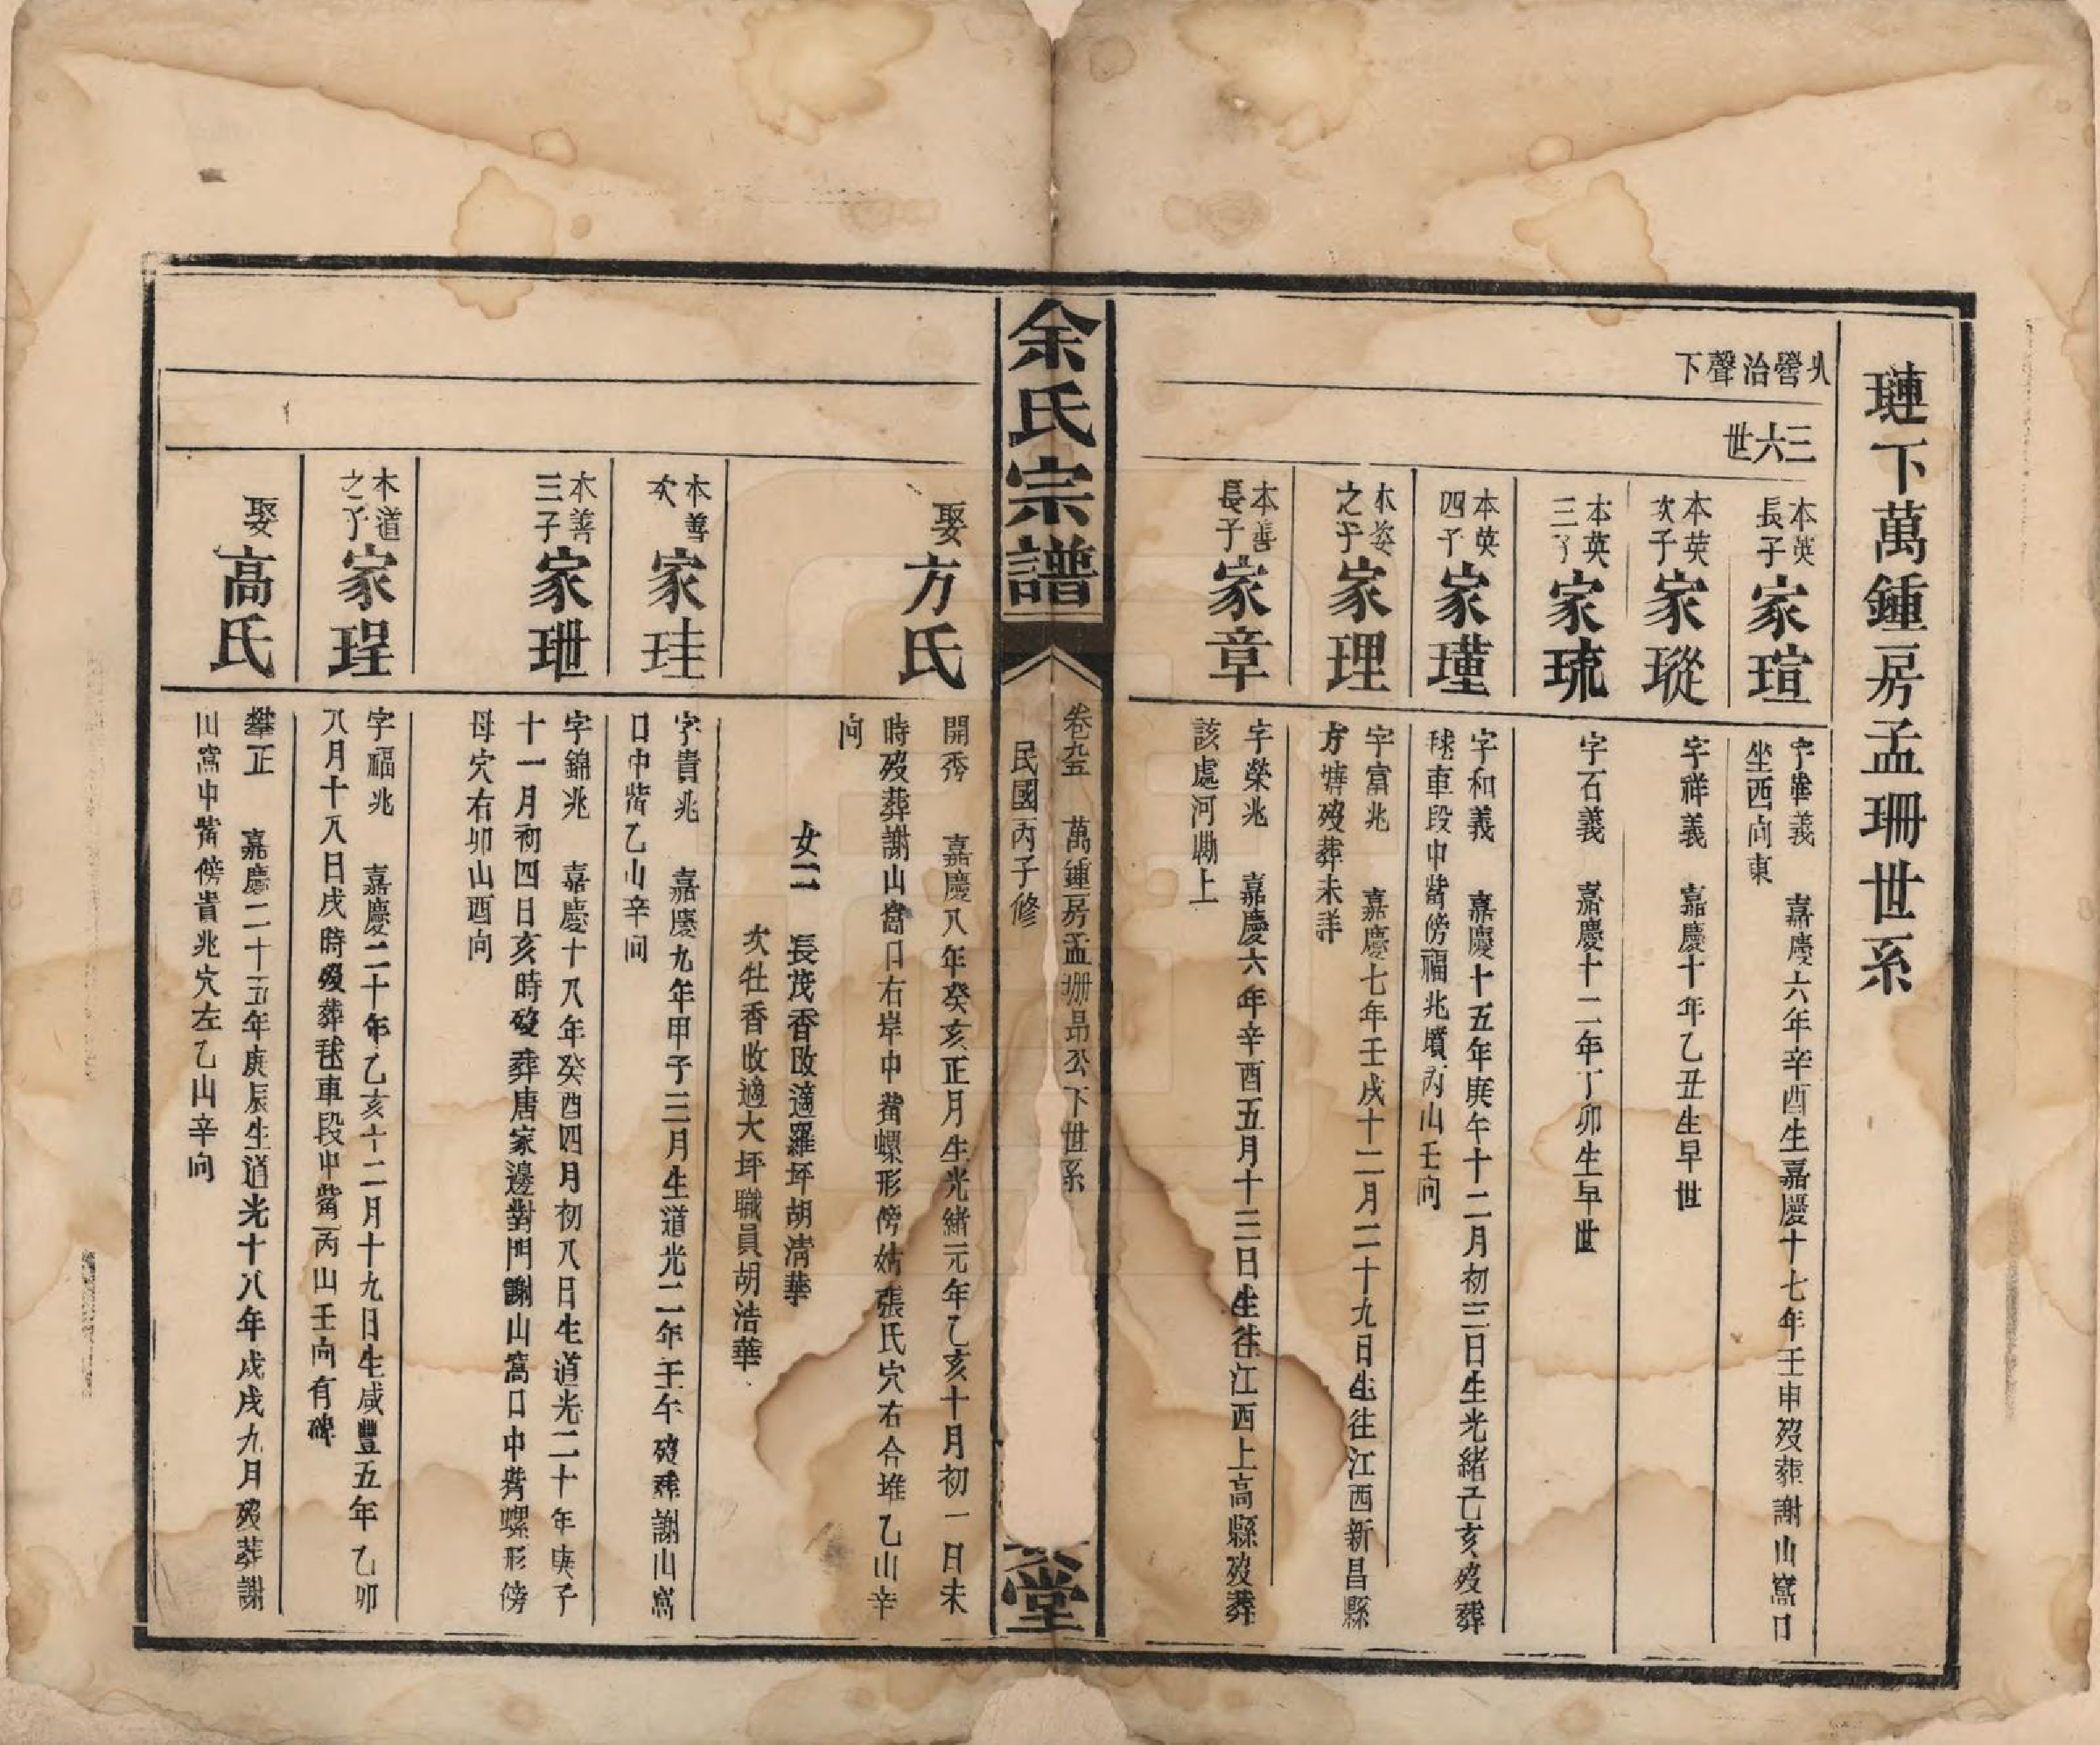 璉下萬鍾房孟珊世系
營治聲下
三六世
本英長子
家瑄
字華義 嘉慶六年辛酉生嘉慶十七年壬申歿葬謝山窩口
坐西向東
本英次子
家瑽
字祥義 嘉慶十年乙丑生早世
本英三子
家琉
字石義 嘉慶十二年丁卯生早世
本英四子
家瑾
字和義 嘉慶十五年庚午十二月初三日生光緒乙亥歿葬
毬車段中嘴傍福兆墳丙山壬向
本姿之子
家理
字富兆 嘉慶七年壬戌十二月二十九日生往江西新昌縣
方塘歿葬未詳
本善長子
家章
字榮兆 嘉慶六年辛酉五月十三日生往江西上高縣歿葬
該處河勘上
余氏宗譜
卷九五 萬鍾房孟珊昂公下世系
民國丙子修
堂
娶
方氏
開秀 嘉慶八年癸亥正月生光緒元年乙亥十月初一日未
時歿葬謝山窩口右岸中嘴螺形傍姑張氏穴右合堆乙山辛
向
女二 長茂香改適羅坪胡清華
次牡香改適大坪職員胡浩華
本善次
家珪
字貴兆 嘉慶九年甲子三月生道光二年壬午歿葬謝山窩
口中嘴乙山辛向
本善三子
家玴
字錦兆 嘉慶十八年癸酉四月初八日生道光二十年庚子
十一月初四日亥時歿葬唐家邊對門謝山窩口中嘴螺形傍
母穴右卯山酉向
本道之子
家珵
字福兆 嘉慶二十年乙亥十二月十九日生咸豐五年乙卯
八月十八日戌時歿葬毬車段中嘴丙山壬向有碑
娶
高氏
攀正 嘉慶二十五年庚辰生道光十八年戊戌九月歿葬謝
山窩中嘴傍貴兆穴左乙山辛向